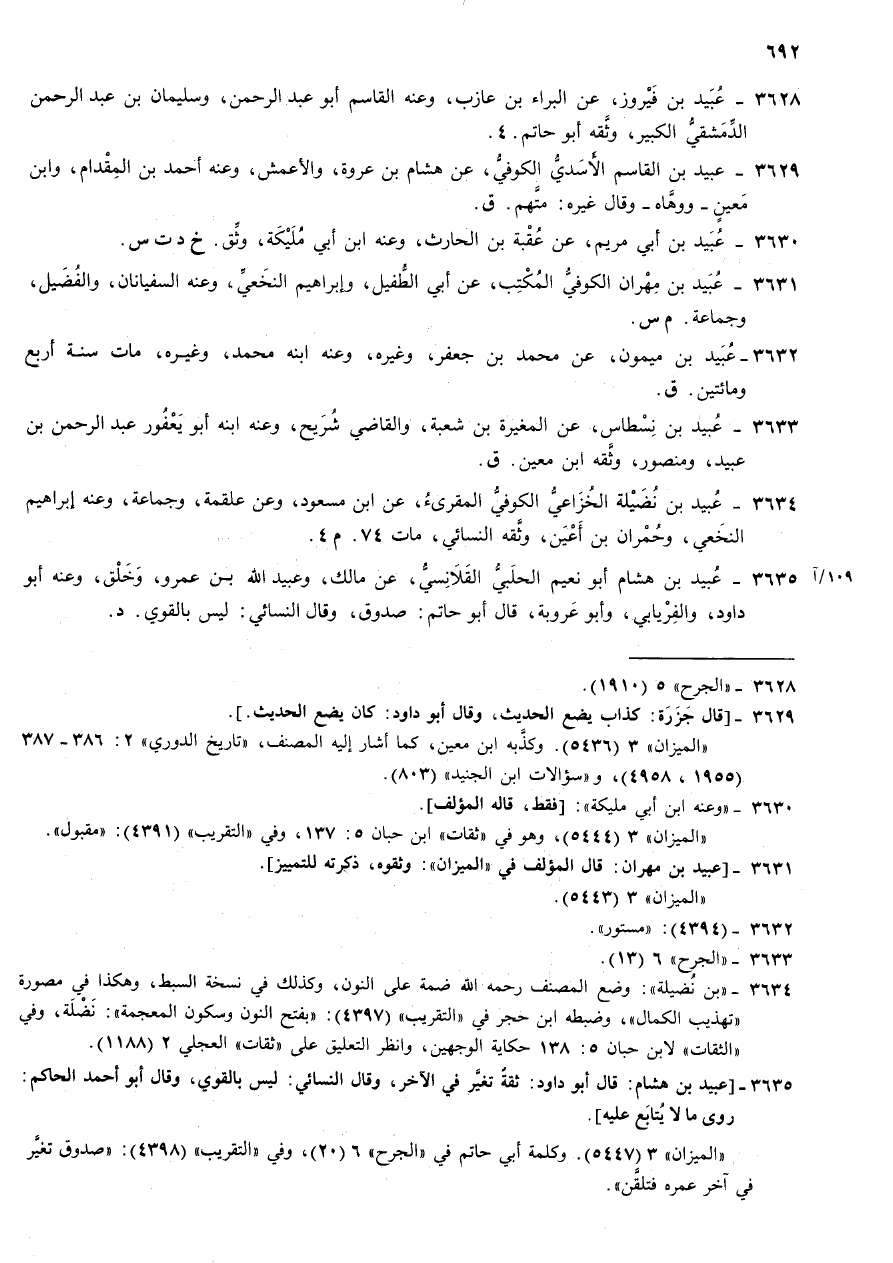 ٦٩٢
٣٦٢٨ - عُبَيد بن فَيْروز، عن البراء بن عازب، وعنه القاسم أبو عبد الرحمن، وسليمان بن عبد الرحمن
الدِّمَشقيُّ الكبير، وثَّقه أبو حاتم. ٤.
٣٦٢٩ - عبيد بن القاسم الأَسَديُّ الكوفيُّ، عن هشام بن عروة، والأعمش، وعنه أحمد بن المِقْدام، وابن
مَعينٍ - ووهَّاه - وقال غيره: متَّهم. ق.
٣٦٣٠ - عُبَيد بن أبي مريم، عن عُقْبة بن الحارث، وعنه ابن أبي مُلَيْكَة، وثِّق. خ د ت س.
٣٦٣١ - عُبَيد بن مِهْران الكوفيُّ المُكْتِب، عن أبي الطُّفيل، وإبراهيم النخَعيِّ، وعنه السفيانان، والفُضَيل،
وجماعة. م س.
٣٦٣٢ - عُبَيد بن ميمون، عن محمد بن جعفر، وغيره، وعنه ابنه محمد، وغيره، مات سنة أربع
ومائتين. ق.
٣٦٣٣ - عُبيد بن نِسْطاس، عن المغيرة بن شعبة، والقاضي شُرَيح، وعنه ابنه أبو يَعْفُور عبد الرحمن بن
عبيد، ومنصور، وثَّقه ابن معين. ق.
٣٦٣٤ - عُبيد بن نُضَيْلة الخُزَاعيُّ الكوفيُّ المقرىءُ، عن ابن مسعود، وعن علقمة، وجماعة، وعنه إبراهيم
النخَعي، وحُمْران بن أَعْيَن، وثَّقه النسائي، مات ٧٤. م ٤.
١٠٩/آ ٣٦٣٥ - عُبيد بن هشام أبو نعيم الحلَبيُّ القَلَانِسيُّ، عن مالك، وعبيد الله بن عمرو، وَخَلْق، وعنه أبو
داود، والفِرْيابي، وأبو عَروبة، قال أبو حاتم: صدوق، وقال النسائي: ليس بالقوي. د.
٣٦٢٨ - «الجرح» ٥ (١٩١٠).
٣٦٢٩ - [قال جَزَرَة: كذاب يضع الحديث، وقال أبو داود: كان يضع الحديث.].
«الميزان» ٣ (٥٤٣٦). وكذَّبه ابن معين، كما أشار إليه المصنف، «تاريخ الدوري» ٢: ٣٨٦ - ٣٨٧
(١٩٥٥ ، ٤٩٥٨)، و «سؤالات ابن الجنيد» (٨٠٣).
٣٦٣٠ - «وعنه ابن أبي مليكة»: [فقط، قاله المؤلف].
«الميزان» ٣ (٥٤٤٤)، وهو في «ثقات» ابن حبان ٥: ١٣٧، وفي «التقريب» (٤٣٩١): «مقبول».
٣٦٣١ - [عبيد بن مهران: قال المؤلف في «الميزان»: وثقوه، ذكرته للتمييز].
«الميزان» ٣ (٥٤٤٣).
٣٦٣٢ - (٤٣٩٤): «مستور».
٣٦٣٣ - «الجرح» ٦ (١٣).
٣٦٣٤ - «بن نُضيلة»: وضع المصنف رحمه الله ضمة على النون، وكذلك في نسخة السبط، وهكذا في مصورة
«تهذيب الكمال»، وضبطه ابن حجر في «التقريب» (٤٣٩٧): «بفتح النون وسكون المعجمة»: نَضْلَة، وفي
«الثقات» لابن حبان ٥: ١٣٨ حكاية الوجهين، وانظر التعليق على «ثقات» العجلي ٢ (١١٨٨).
٣٦٣٥ - [عبيد بن هشام: قال أبو داود: ثقةٌ تغيَّر في الآخر، وقال النسائي: ليس بالقوي، وقال أبو أحمد الحاكم:
روى ما لا يُتابَع عليه].
«الميزان» ٣ (٥٤٤٧). وكلمة أبي حاتم في «الجرح» ٦ (٢٠)، وفي «التقريب» (٤٣٩٨): «صدوق تغيَّر
في آخر عمره فتلقَّن».